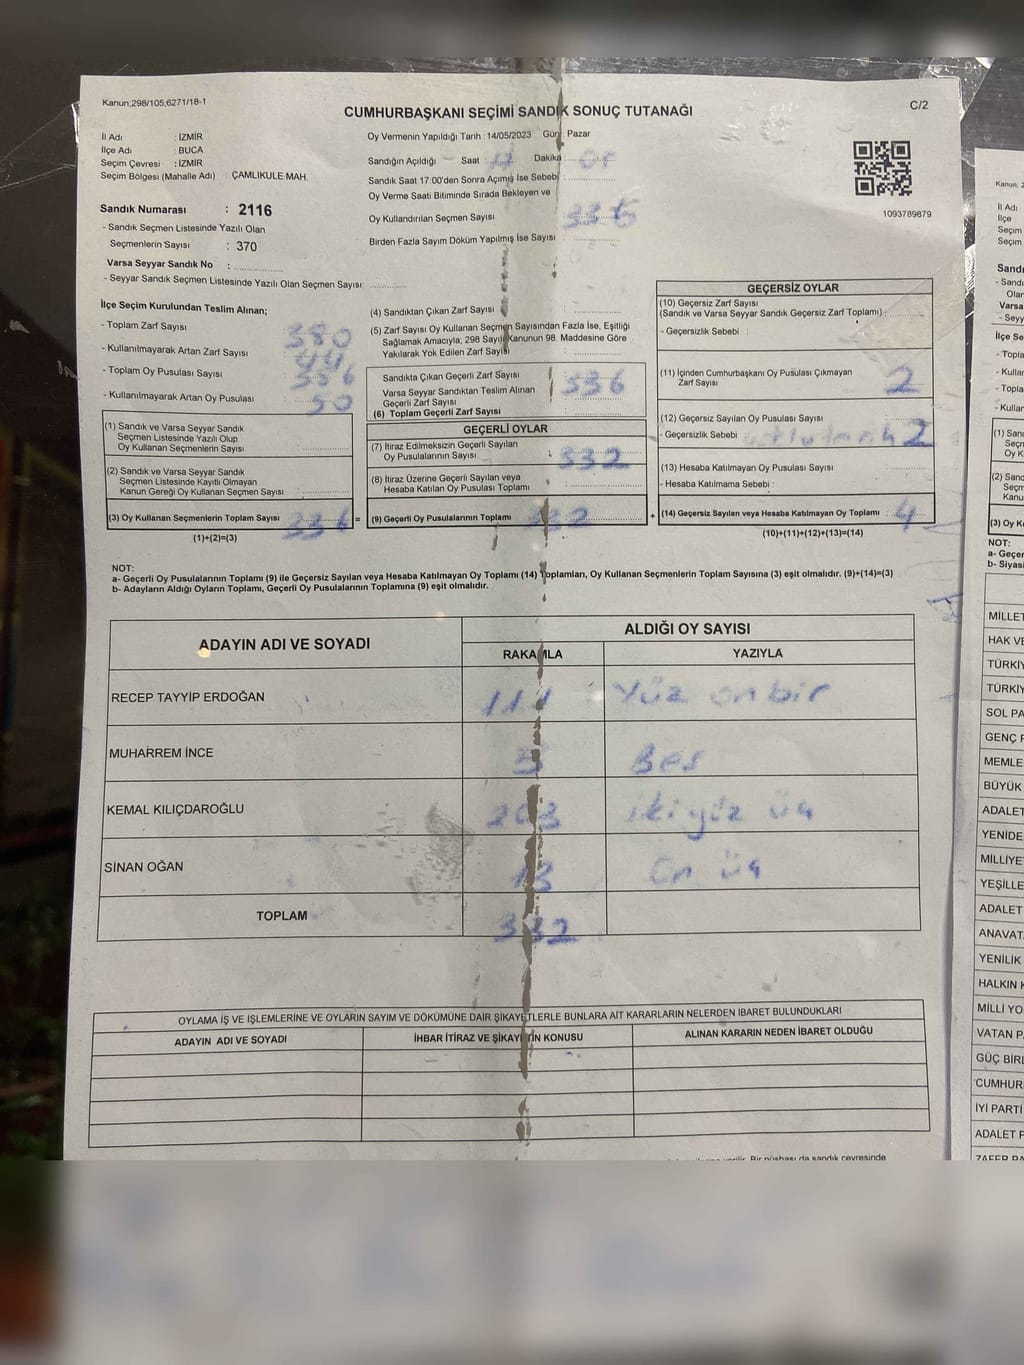 Kanun,298/105,6271/18-1
C/2
CUMHURBAŞKANI SEÇİMİ SANDIK SONUÇ TUTANAĞI
İl Adı : İZMİR
İlçe Adı : BUCA
Seçim Çevresi : İZMİR
Seçim Bölgesi (Mahalle Adı) : ÇAMLIKULE MAH.
Oy Vermenin Yapıldığı Tarih : 14/05/2023 Gün: Pazar
Sandığın Açıldığı Saat : Dakika :
Sandık Saat 17:00'den Sonra Açımış İse Sebebi :
Oy Verme Saati Bitiminde Sırada Bekleyen ve
Oy Kullandırılan Seçmen Sayısı
Birden Fazla Sayım Döküm Yapılmış İse Sayısı :
1093789879
Sandık Numarası : 2116
- Sandık Seçmen Listesinde Yazılı Olan
Seçmenlerin Sayısı : 370
Varsa Seyyar Sandık No :
- Seyyar Sandık Seçmen Listesinde Yazılı Olan Seçmen Sayısı:
İlçe Seçim Kurulundan Teslim Alınan;
- Toplam Zarf Sayısı 380
- Kullanılmayarak Artan Zarf Sayısı 44
- Toplam Oy Pusulası Sayısı
- Kullanılmayarak Artan Oy Pusulası 50
(1) Sandık ve Varsa Seyyar Sandık
Seçmen Listesinde Yazılı Olup
Oy Kullanan Seçmenlerin Sayısı
(2) Sandık ve Varsa Seyyar Sandık
Seçmen Listesinde Kayıtlı Olmayan
Kanun Gereği Oy Kullanan Seçmen Sayısı :
(3) Oy Kullanan Seçmenlerin Toplam Sayısı 336 =
(1)+(2)=(3)
(4) Sandıktan Çıkan Zarf Sayısı
(5) Zarf Sayısı Oy Kullanan Seçmen Sayısından Fazla İse, Eşitliği
Sağlamak Amacıyla; 298 Sayılı Kanunun 98. Maddesine Göre
Yakılarak Yok Edilen Zarf Sayısı
Sandıkta Çıkan Geçerli Zarf Sayısı 336
Varsa Seyyar Sandıktan Teslim Alınan
Geçerli Zarf Sayısı
(6) Toplam Geçerli Zarf Sayısı
GEÇERLİ OYLAR
(7) İtiraz Edilmeksizin Geçerli Sayılan
Oy Pusulalarının Sayısı 332
(8) İtiraz Üzerine Geçerli Sayılan veya
Hesaba Katılan Oy Pusulası Toplamı
(9) Geçerli Oy Pusulalarının Toplamı 332 +
GEÇERSİZ OYLAR
(10) Geçersiz Zarf Sayısı
(Sandık ve Varsa Seyyar Sandık Geçersiz Zarf Toplamı) :
- Geçersizlik Sebebi :
(11) İçinden Cumhurbaşkanı Oy Pusulası Çıkmayan
Zarf Sayısı 2
(12) Geçersiz Sayılan Oy Pusulası Sayısı :
- Geçersizlik Sebebi 2
(13) Hesaba Katılmayan Oy Pusulası Sayısı :
- Hesaba Katılmama Sebebi :
(14) Geçersiz Sayılan veya Hesaba Katılmayan Oy Toplamı : 4
(10)+(11)+(12)+(13)=(14)
NOT:
a- Geçerli Oy Pusulalarının Toplamı (9) ile Geçersiz Sayılan veya Hesaba Katılmayan Oy Toplamı (14) Toplamları, Oy Kullanan Seçmenlerin Toplam Sayısına (3) eşit olmalıdır. (9)+(14)=(3)
b- Adayların Aldığı Oyların Toplamı, Geçerli Oy Pusulalarının Toplamına (9) eşit olmalıdır.
ADAYIN ADI VE SOYADI
ALDIĞI OY SAYISI
RAKAMLA YAZIYLA
RECEP TAYYİP ERDOĞAN 111 Yüz on bir
MUHARREM İNCE 5 Beş
KEMAL KILIÇDAROĞLU 203 iki yüz üç
SİNAN OĞAN 13 On üç
TOPLAM 332
OYLAMA İŞ VE İŞLEMLERİNE VE OYLARIN SAYIM VE DÖKÜMÜNE DAİR ŞİKAYETLERLE BUNLARA AİT KARARLARIN NELERDEN İBARET BULUNDUKLARI
ADAYIN ADI VE SOYADI
İHBAR İTİRAZ VE ŞİKAYETİN KONUSU
ALINAN KARARIN NEDEN İBARET OLDUĞU
Bir nüshası da sandık çevresinde
Kanun, 2
İl Adı
İlçe
Seçim
Seçim
Sandı
- Sandı
Olar
Varsa
- Seyy
İlçe Se
- Topla
- Kullar
- Topla
- Kullar
(1) San
Seçn
Oy K
(2) Sand
Seçm
Kanu
(3) Oy K
NOT:
a- Geçer
b- Siyasi
MİLLET
HAK VE
TÜRKİY
TÜRKİY
SOL PA
GENÇ P
MEMLE
BÜYÜK
ADALET
YENİDE
MİLLİYET
YEŞİLLE
ADALET
ANAVAT
YENİLİK
HALKIN K
MİLLİ YO
VATAN P
GÜÇ BİRL
CUMHUR
İYİ PARTİ
ADALET P
ZAFER PA